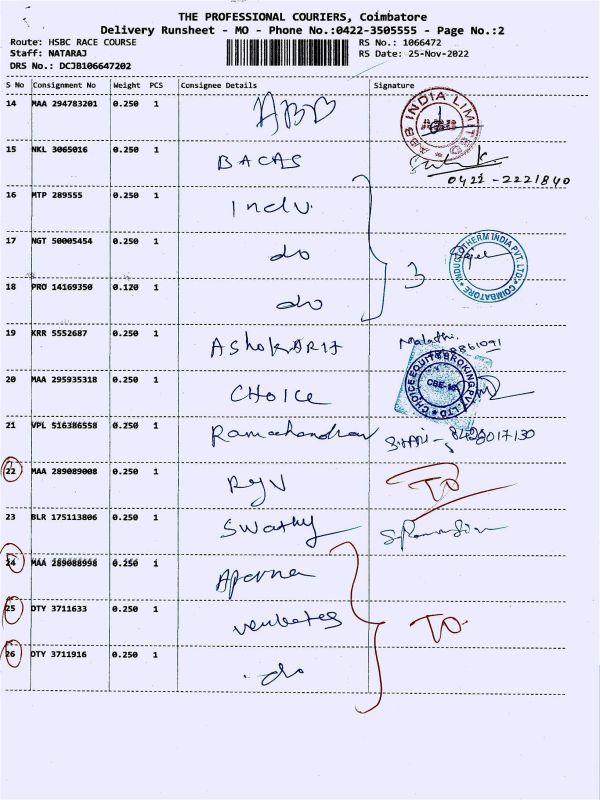 THE PROFESSIONAL COURIERS, Coimbatore
Delivery Runsheet - MO - Phone No.:0422-3505555 - Page No.:2
Route: HSBC RACE COURSE
Staff: NATARAJ
DRS No.: DCJB106647202
RS No.: 1066472
RS Date: 25-Nov-2022
S No Consignment No Weight PCS Consignee Details Signature
14 MAA 294783201 0.250 1 ABB
ABB INDIA LIMITED
15 NKL 3065016 0.250 1 BACAS
0422-2221840
16 MTP 289555 0.250 1 Indu.
17 NGT 50005454 0.250 1 do
3
INDUCTOTHERM INDIA PVT. LTD. COIMBATORE
18 PRO 14169350 0.120 1 do
19 KRR 5552687 0.250 1 Malathi.
20 MAA 295935318 0.250 1 CHOICE
CHOICE EQUITY BROKING PVT. LTD
21 VPL 516386558 0.250 1 Ramachandran
22 MAA 289089008 0.250 1 TO
23 BLR 175113806 0.250 1 Swathy
24 MAA 289088998 0.250 1 Aparna
25 OTY 3711633 0.250 1 TO
26 OTY 3711916 0.250 1 do